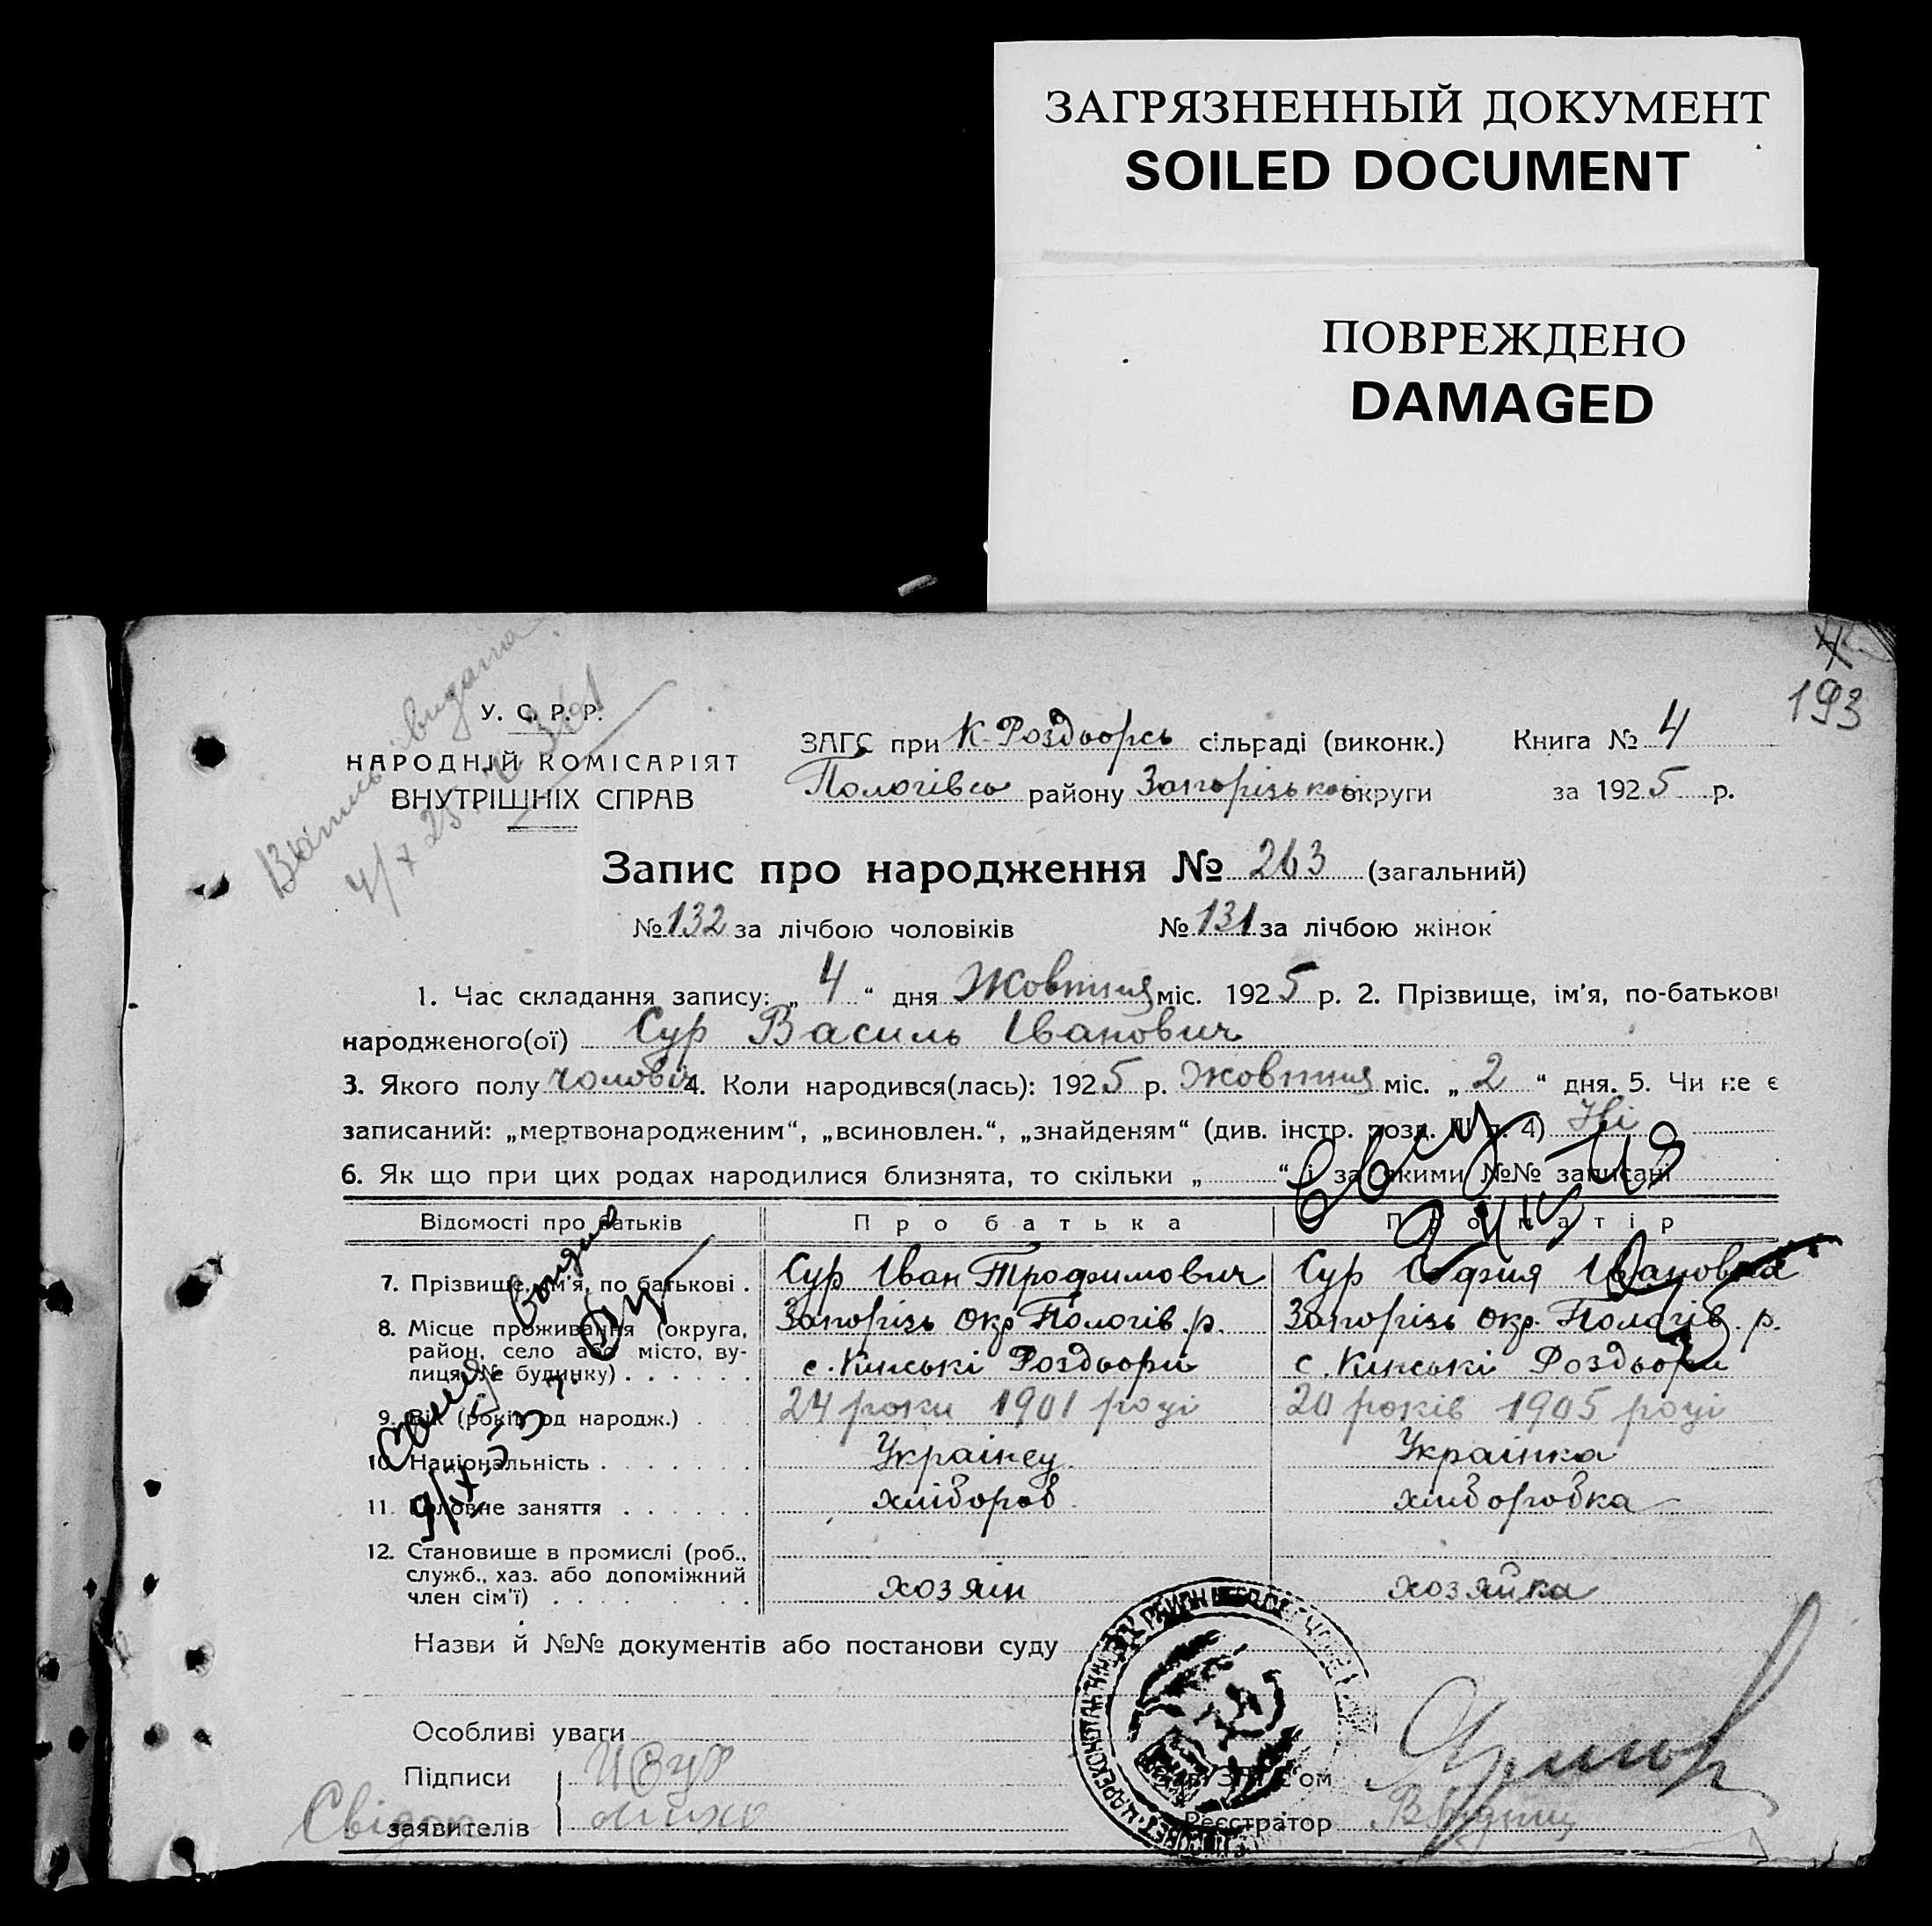 ЗАГРЯЗНЕННЫЙ ДОКУМЕНТ
SOILED DOCUMENT
ПОВРЕЖДЕНО
DAMAGED
193
видана
У. С. Р. Р.
НАРОДНІЙ КОМІСАРІЯТ
ВНУТРІШНІХ СПРАВ
ЗАГС при К-Роздорсь сільраді (виконк.) Книга № 4
Пологівсь району Запорізької округи за 1925 р.
Запис про народження № 263 (загальний)
№ 132 за лічбою чоловіків № 131 за лічбою жінок
1. Час складання запису: „ 4 “ дня Жовтня міс. 1925 р. 2. Прізвище, ім'я, по-батькові
народженого(ої) Сур Василь Іванович
3. Якого полу чоловіч 4. Коли народився(лась): 1925 р. Жовтня міс. „ 2 “ дня. 5. Чи не є
записаний: „мертвонародженим“, „всиновлен.“, „знайденям“ (див. інстр. розд. III п. 4) Ні
6. Як що при цих родах народилися близнята, то скільки „ “ і за якими №№ записані
Відомості про батьків Про батька Про матір
7. Прізвище, ім'я, по батькові . Сур Іван Трофимович Сур София Івановна
8. Місце проживання (округа, район, село або місто, вулиця, № будинку) . . . . . . Запорізь окр Пологів.р. Запорізь окр. Пологів. р.
с. Кінські Роздори с. Кінські Роздори
9. Вік (років од народж.) . . . 24 роки 1901 році 20 років 1905 році
10. Національність . . . . . . . Українец Українка
11. Головне заняття . . . . . . хлібороб хліборобка
12. Становище в промислі (роб., служб., хаз. або допоміжний член сім'ї) . . . . . . . . хозяін хозяйка
Назви й №№ документів або постанови суду
Особливі уваги
Підписи
заявителів
Реєстратор